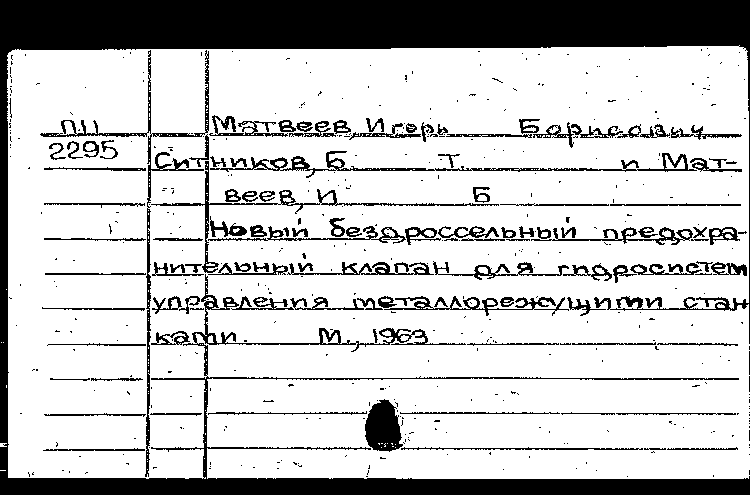 П11 Матвеев, Игорь Борисович
2295 Ситников, Б. Т. и Мат-
веев, И Б
Новый бездроссельный предохра-
нительный клапан для гидросистем
управления металлорежущими стан
ками. М., 1963